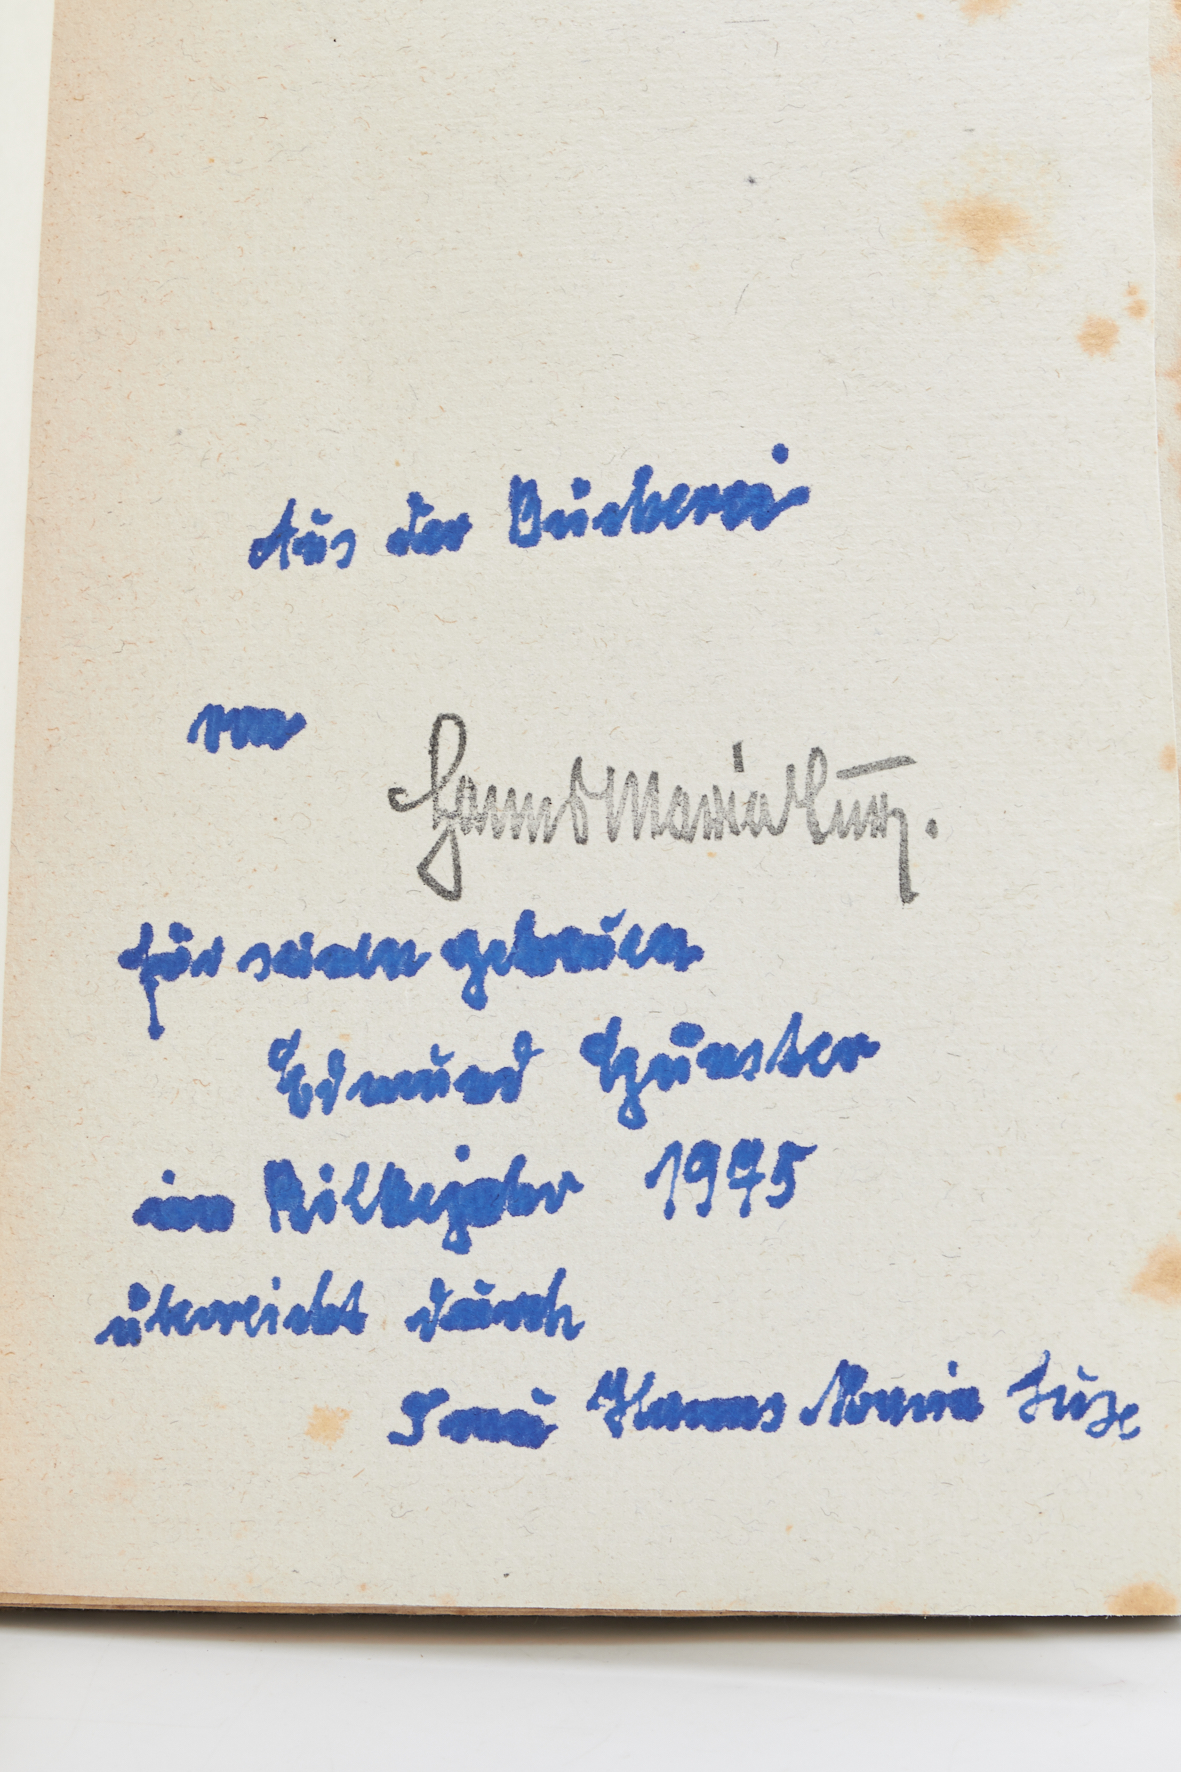 Aus der Bücherei
von Hanns Maria Lux.
für seinen getreuen
Edmund Günster
im Rilkejahr 1975
überreicht durch
Frau Hanns Maria